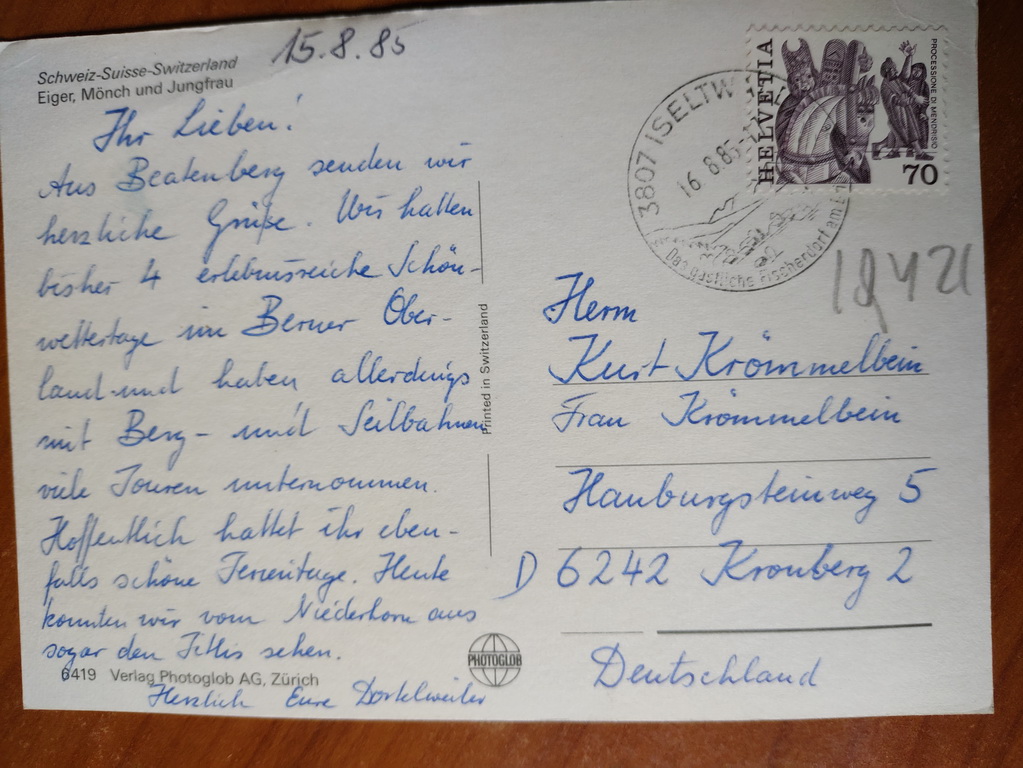 15.8.85
Schweiz-Suisse-Switzerland
Eiger, Mönch und Jungfrau
Ihr Lieben!
Aus Beatenberg senden wir
herzliche Grüße. Wir hatten
bisher 4 erlebnisreiche Schön-
wettertage im Berner Ober-
land und haben allerdings
mit Berg- und Seilbahnen
viele Touren unternommen.
Hoffentlich hattet ihr eben-
falls schöne Ferientage. Heute
konnten wir vom Niederhorn aus
sogar den Titlis sehen.
6419 Verlag Photoglob AG, Zürich
Herzlich Eure Dortelweiler
Printed in Switzerland
PHOTOGLOB
3807 ISELTW
16.8.85
Das gastliche Fischerdorf am
HELVETIA
PROCESSIONE DI MENDRISIO
70
Herrn
Kurt Krömmelbein
Frau Krömmelbein
Hauburgsteinweg 5
D 6242 Kronberg 2
Deutschland